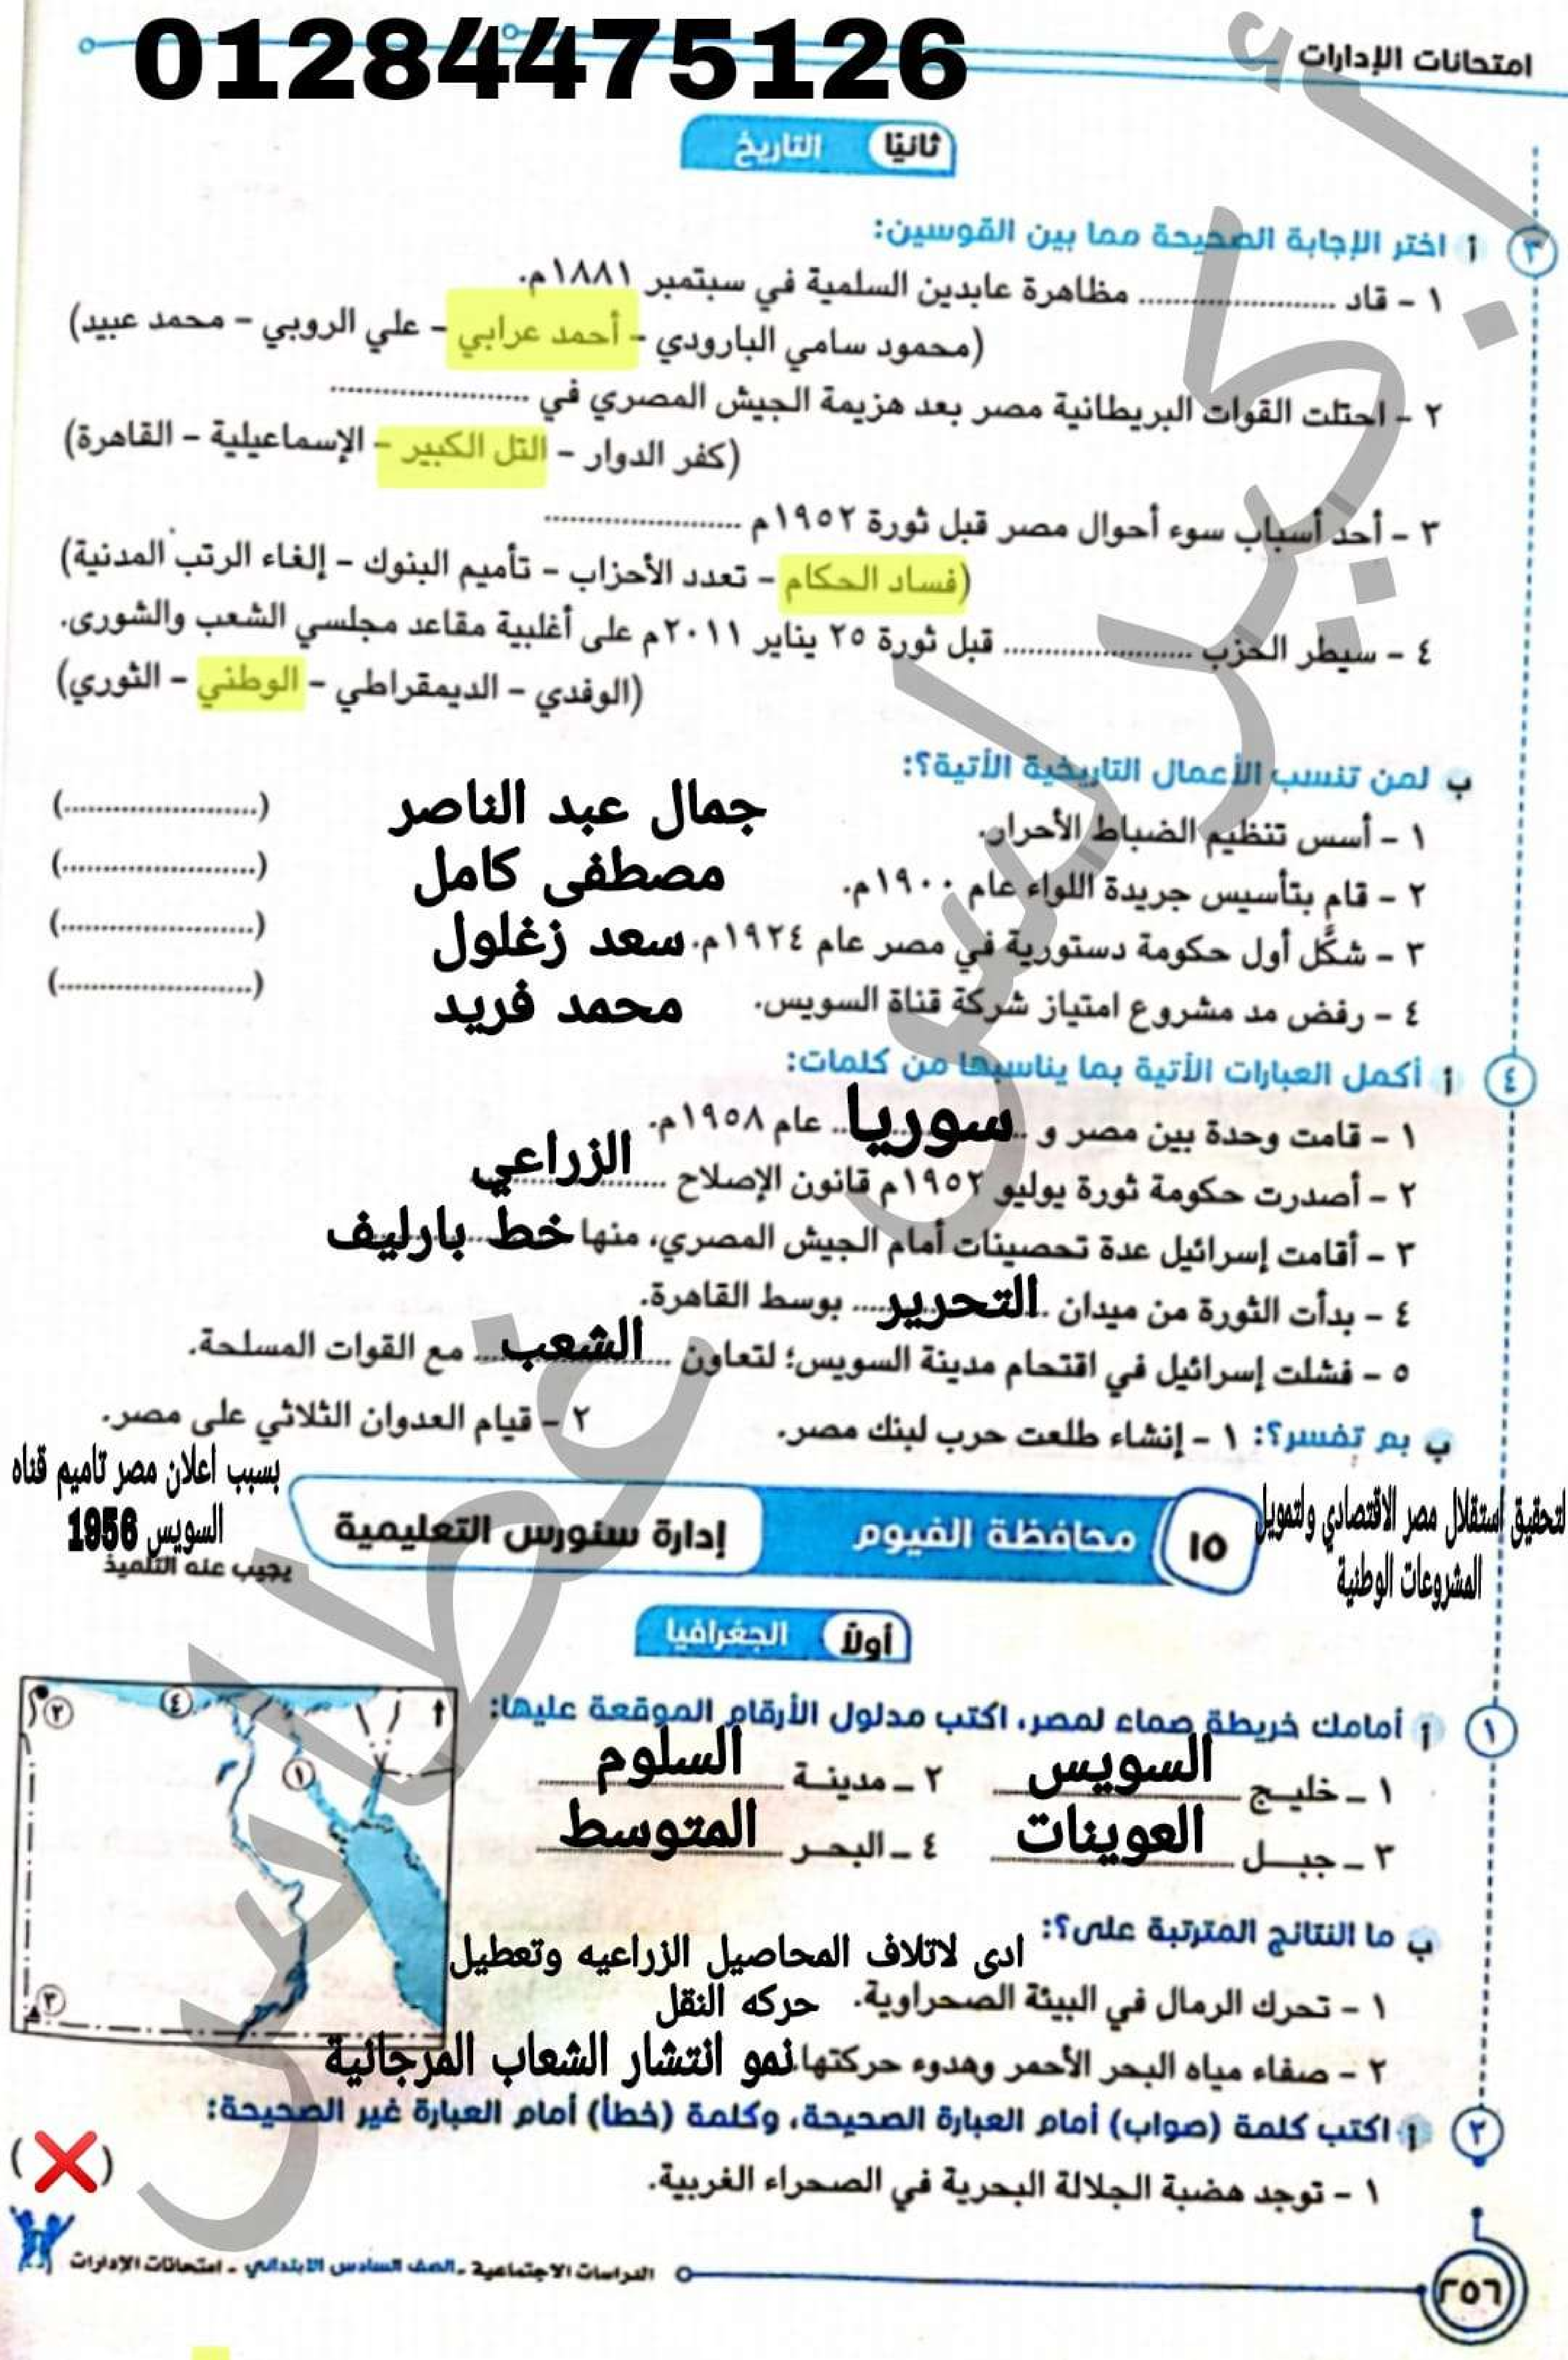 01284475126
امتحانات الإدارات
ثانيًا التاريخ
٣ أ اختر الإجابة الصحيحة مما بين القوسين:
١ - قاد ........................ مظاهرة عابدين السلمية في سبتمبر ١٨٨١م.
(محمود سامي البارودي - أحمد عرابي - علي الروبي - محمد عبيد)
٢ - احتلت القوات البريطانية مصر بعد هزيمة الجيش المصري في ........................
(كفر الدوار - التل الكبير - الإسماعيلية - القاهرة)
٣ - أحد أسباب سوء أحوال مصر قبل ثورة ١٩٥٢م ........................
(فساد الحكام - تعدد الأحزاب - تأميم البنوك - إلغاء الرتب المدنية)
٤ - سيطر الحزب ........................ قبل ثورة ٢٥ يناير ٢٠١١م على أغلبية مقاعد مجلسي الشعب والشورى.
(الوفدي - الديمقراطي - الوطني - الثوري)
ب لمن تنسب الأعمال التاريخية الآتية؟:
١ - أسس تنظيم الضباط الأحرار. جمال عبد الناصر (........................)
٢ - قام بتأسيس جريدة اللواء عام ١٩٠٠م. مصطفى كامل (........................)
٣ - شكَّل أول حكومة دستورية في مصر عام ١٩٢٤م. سعد زغلول (........................)
٤ - رفض مد مشروع امتياز شركة قناة السويس. محمد فريد (........................)
٤ أ أكمل العبارات الآتية بما يناسبها من كلمات:
١ - قامت وحدة بين مصر و سوريا عام ١٩٥٨م.
٢ - أصدرت حكومة ثورة يوليو ١٩٥٢م قانون الإصلاح الزراعي
٣ - أقامت إسرائيل عدة تحصينات أمام الجيش المصري، منها خط بارليف
٤ - بدأت الثورة من ميدان التحرير بوسط القاهرة.
٥ - فشلت إسرائيل في اقتحام مدينة السويس؛ لتعاون الشعب مع القوات المسلحة.
ب بم تفسر؟: ١ - إنشاء طلعت حرب لبنك مصر. ٢ - قيام العدوان الثلاثي على مصر.
لتحقيق استقلال مصر الاقتصادي ولتمويل
المشروعات الوطنية
بسبب اعلان مصر تاميم قناه
السويس 1956
١٥ محافظة الفيوم إدارة سنورس التعليمية
يجيب عنه التلميذ
أولًا الجغرافيا
١ أ أمامك خريطة صماء لمصر، اكتب مدلول الأرقام الموقعة عليها:
١ - خليج السويس ٢ - مدينة السلوم
٣ - جبل العوينات ٤ - البحر المتوسط
٢ ٤ ١ ٣
ب ما النتائج المترتبة على؟:
ادى لاتلاف المحاصيل الزراعيه وتعطيل
١ - تحرك الرمال في البيئة الصحراوية. حركه النقل
٢ - صفاء مياه البحر الأحمر وهدوء حركتها. نمو انتشار الشعاب المرجانية
٢ أ اكتب كلمة (صواب) أمام العبارة الصحيحة، وكلمة (خطأ) أمام العبارة غير الصحيحة:
١ - توجد هضبة الجلالة البحرية في الصحراء الغربية. (❌)
٢٥٦ الدراسات الاجتماعية - الصف السادس الابتدائي - امتحانات الإدارات
أ. كيرلس عطا س